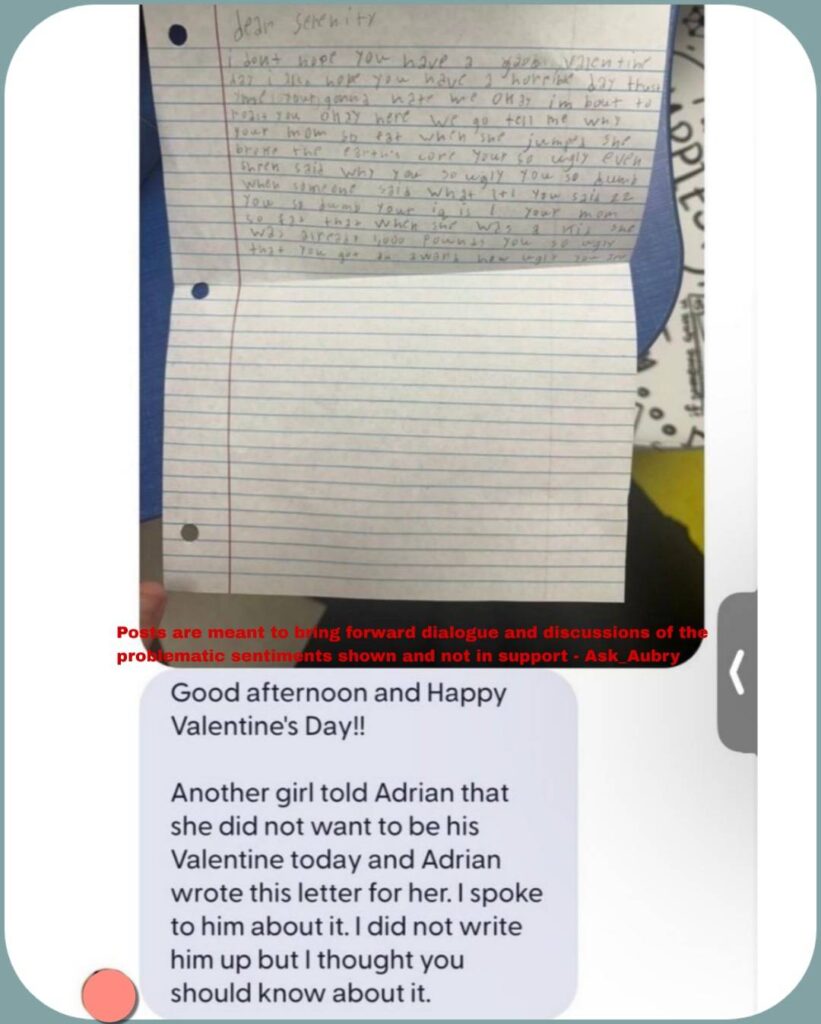 dear serenity
i dont hope you have a good valentine
day i also hope you have a horeible day thust
me your gonna hate me okay im bout to
roast you okay here we go tell me why
your mom so fat when she jumped she
broke the earth's core your so ugly even
shren said why you so ugly you so dumb
when someone said what 1+1 you said 22
you so dumb your iq is 1 your mom
so fat that when she was a kid she
was already 1,000 pounds you so ugly
that you got an award how ugly you are
APPLE
if
Posts are meant to bring forward dialogue and discussions of the
problematic sentiments shown and not in support - Ask_Aubry
Good afternoon and Happy
Valentine's Day!!
Another girl told Adrian that
she did not want to be his
Valentine today and Adrian
wrote this letter for her. I spoke
to him about it. I did not write
him up but I thought you
should know about it.